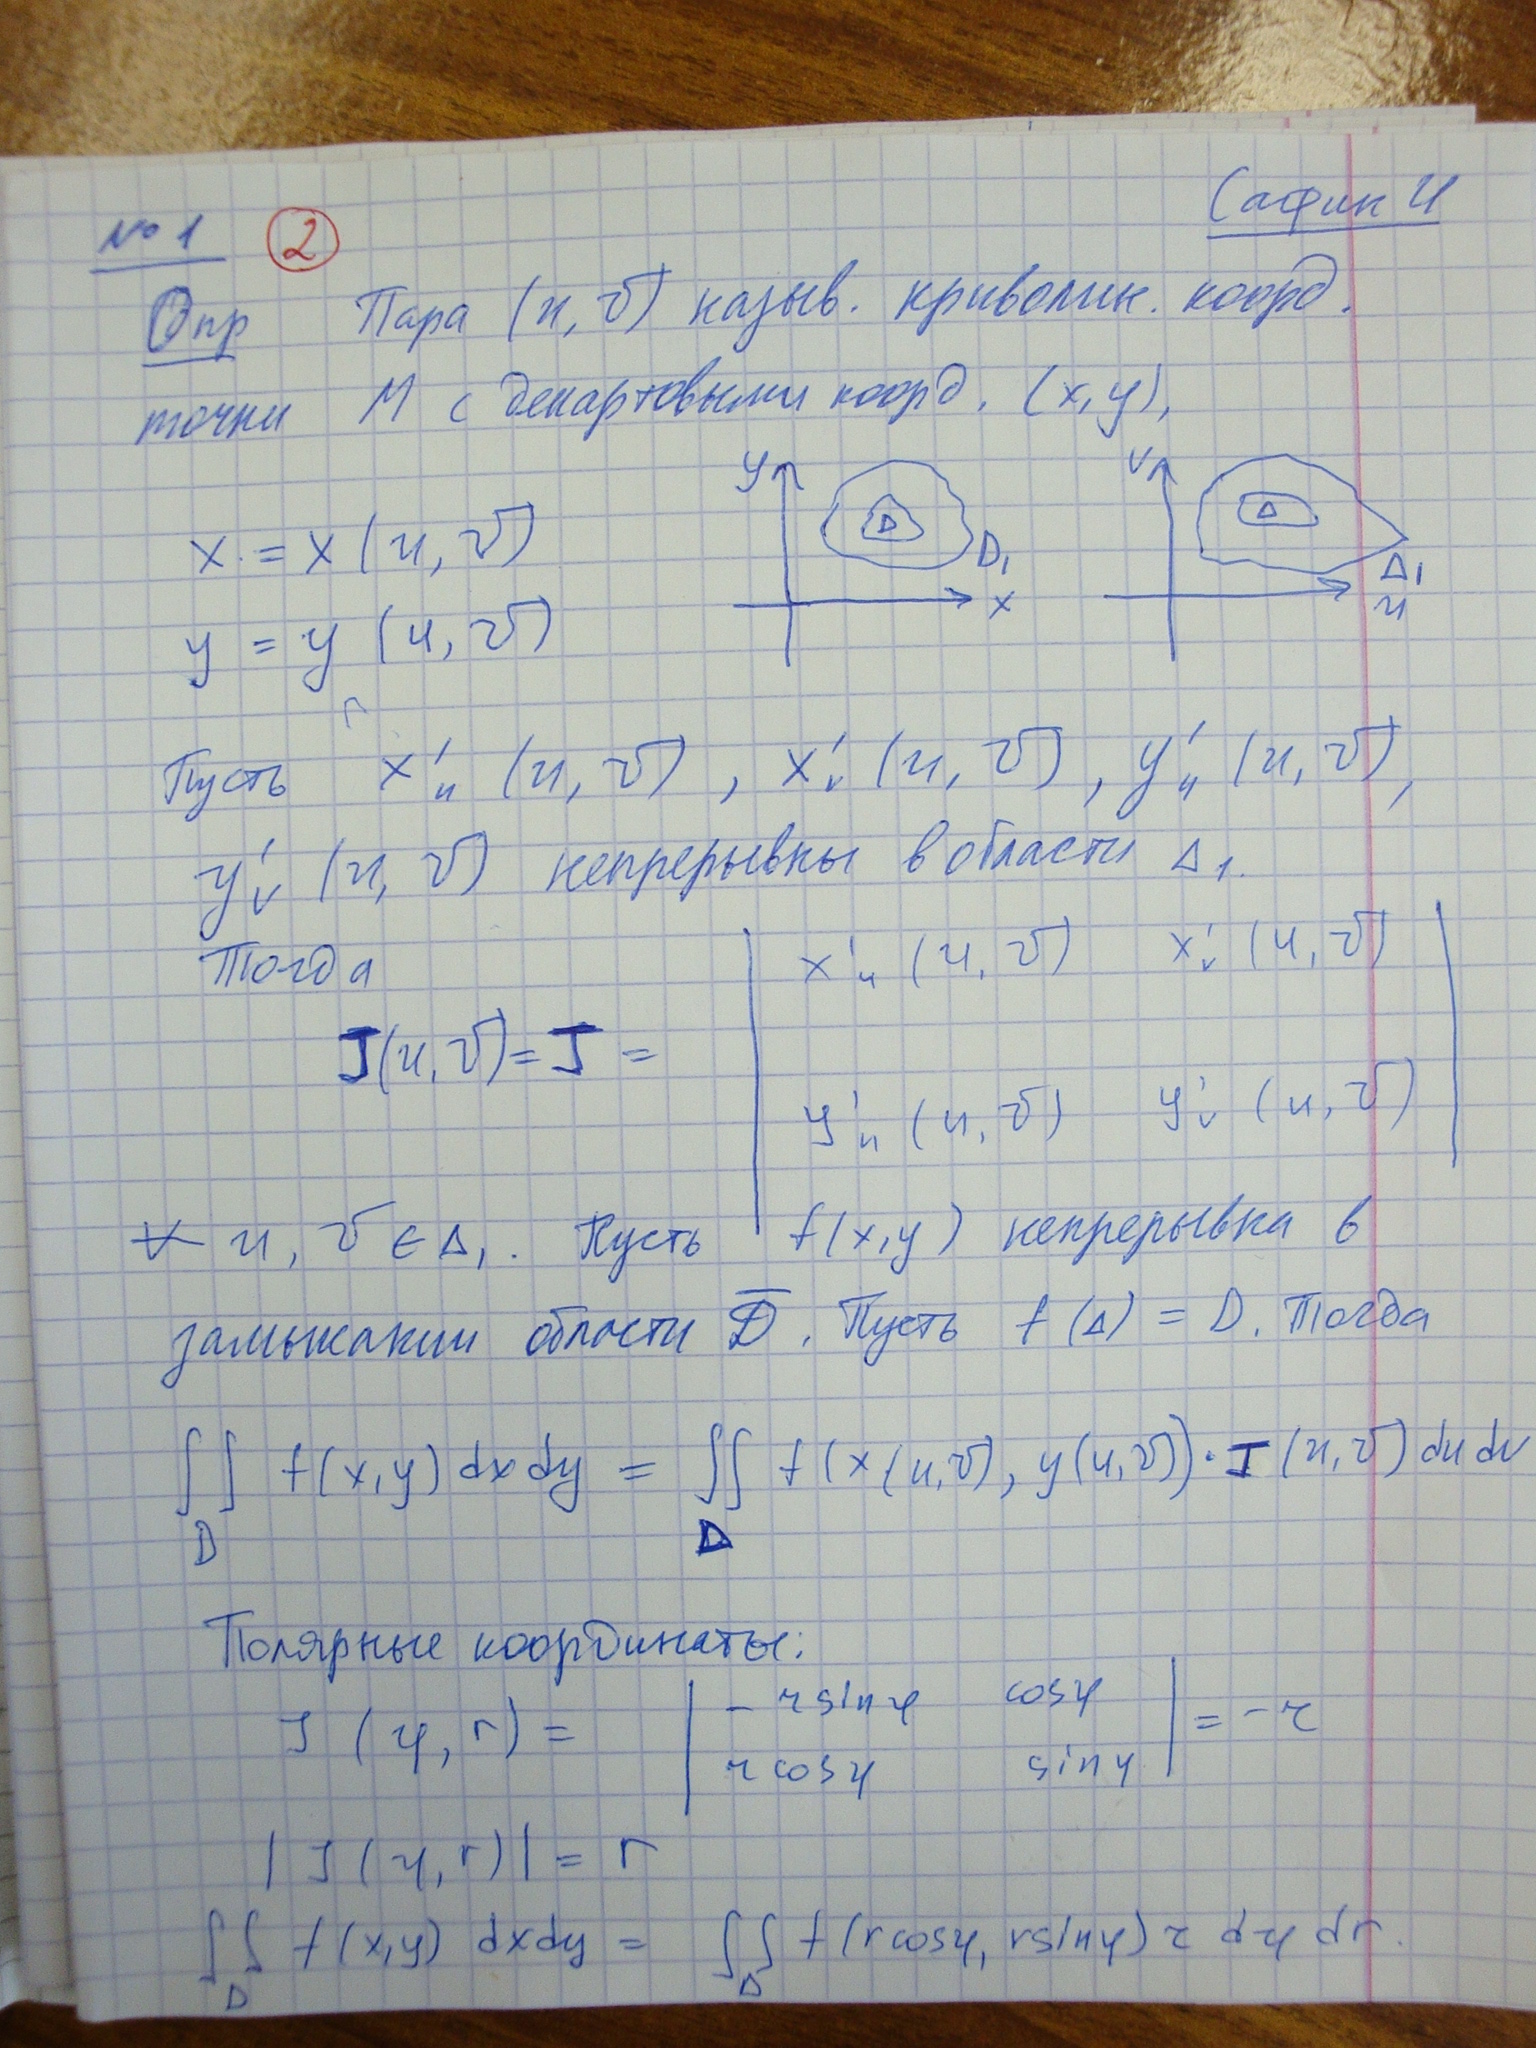 № 1 2 Сафин И
Опр Пара (u, v) назыв. криволин. коорд.
точки M с декартовыми коорд. (x, y),
y D D₁ x
v Δ Δ₁ u
x = x (u, v)
y = y (u, v)
Пусть x'ᵤ (u, v), x'ᵥ (u, v), y'ᵤ (u, v),
y'ᵥ (u, v) непрерывны в области Δ₁.
Тогда
J(u, v) = J = | x'ᵤ (u, v) x'ᵥ (u, v) |
| y'ᵤ (u, v) y'ᵥ (u, v) |
∀ u, v ∈ Δ₁. Пусть f(x, y) непрерывна в
замыкании области D̅. Пусть f(Δ) = D. Тогда
∬ f(x, y) dx dy = ∬ f(x(u, v), y(u, v)) · J(u, v) du dv
D D
Полярные координаты:
J (φ, r) = | -r sin φ cos φ | = -r
| r cos φ sin φ |
| J (φ, r) | = r
∬ f(x, y) dx dy = ∬ f(r cos φ, r sin φ) r dφ dr.
D Δ